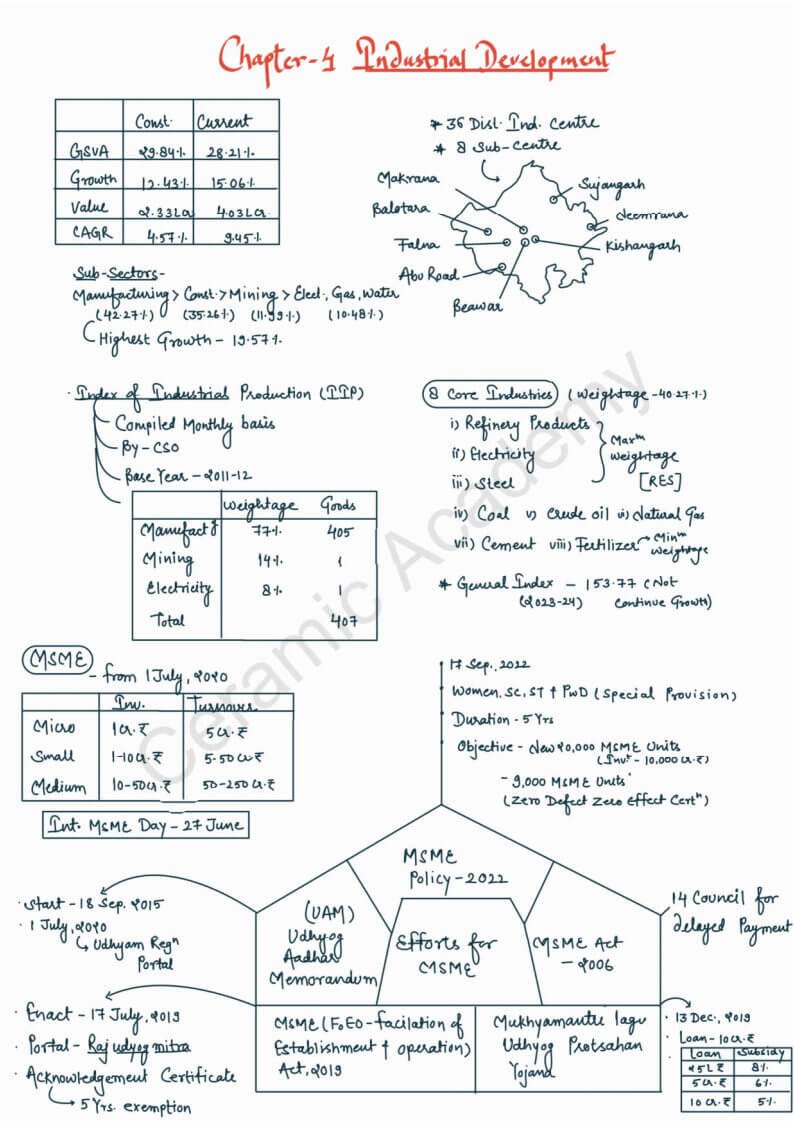 Chapter-4 Industrial Development
Const. Current
GSVA 29.84% 28.21%
Growth 12.43% 15.06%
Value 2.33LCr 4.03LCr.
CAGR 4.57% 9.45%
* 36 Dist. Ind. Centre
* 8 Sub-Centre
Makrana
Balotara
Falna
Abu Road
Beawar
Sujangarh
Neemrana
Kishangarh
Sub-Sectors-
Manufacturing > Const. > Mining > Elect., Gas, Water
(42.27%) (35.26%) (11.99%) (10.48%)
Highest Growth - 19.57%
· Index of Industrial Production (IIP)
Compiled Monthly basis
By - CSO
Base Year - 2011-12
Weightage Goods
Manufactg 77% 405
Mining 14% 1
Electricity 8% 1
Total 407
8 Core Industries (Weightage - 40.27%)
i) Refinery Products
ii) Electricity
iii) Steel
Maxm
weightage
[RES]
iv) Coal v) Crude oil vi) Natural Gas
vii) Cement viii) Fertilizer → Minm
weightage
* General Index - 153.77 (Not
(2023-24) Continue Growth)
MSME - from 1 July, 2020
Inv. Turnover
Micro 1Cr.₹ 5Cr.₹
Small 1-10Cr.₹ 5-50Cr.₹
Medium 10-50Cr.₹ 50-250Cr.₹
Int. MSME Day - 27 June
17 Sep., 2022
Women, SC, ST & PwD (Special Provision)
Duration - 5 Yrs
Objective - New 20,000 MSME Units
(Invt - 10,000 Cr.₹)
- 9,000 MSME Units
(Zero Defect Zero Effect Certn)
MSME
Policy-2022
· Start - 18 Sep. 2015
· 1 July, 2020
Udhyam Regn
Portal
(UAM)
Udhyog
Aadhar
Memorandum
Efforts for
MSME
MSME Act
- 2006
14 Council for
delayed Payment
· Enact - 17 July, 2019
· Portal - Rajudyogmitra
· Acknowledgement Certificate
5 Yrs. exemption
MSME (FoEO - facilation of
Establishment & operation)
Act, 2019
Mukhyamantri lagu
Udhyog Protsahan
Yojana
· 13 Dec., 2019
· Loan - 10Cr.₹
· Loan Subsidy
25L₹ 8%
5Cr.₹ 6%
10Cr.₹ 5%
Ceramic Academy